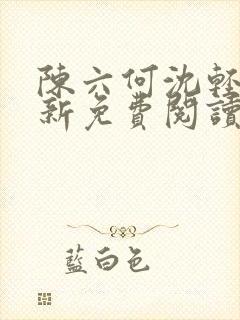 陳六何沈輕
新免費閱讀
藍白色